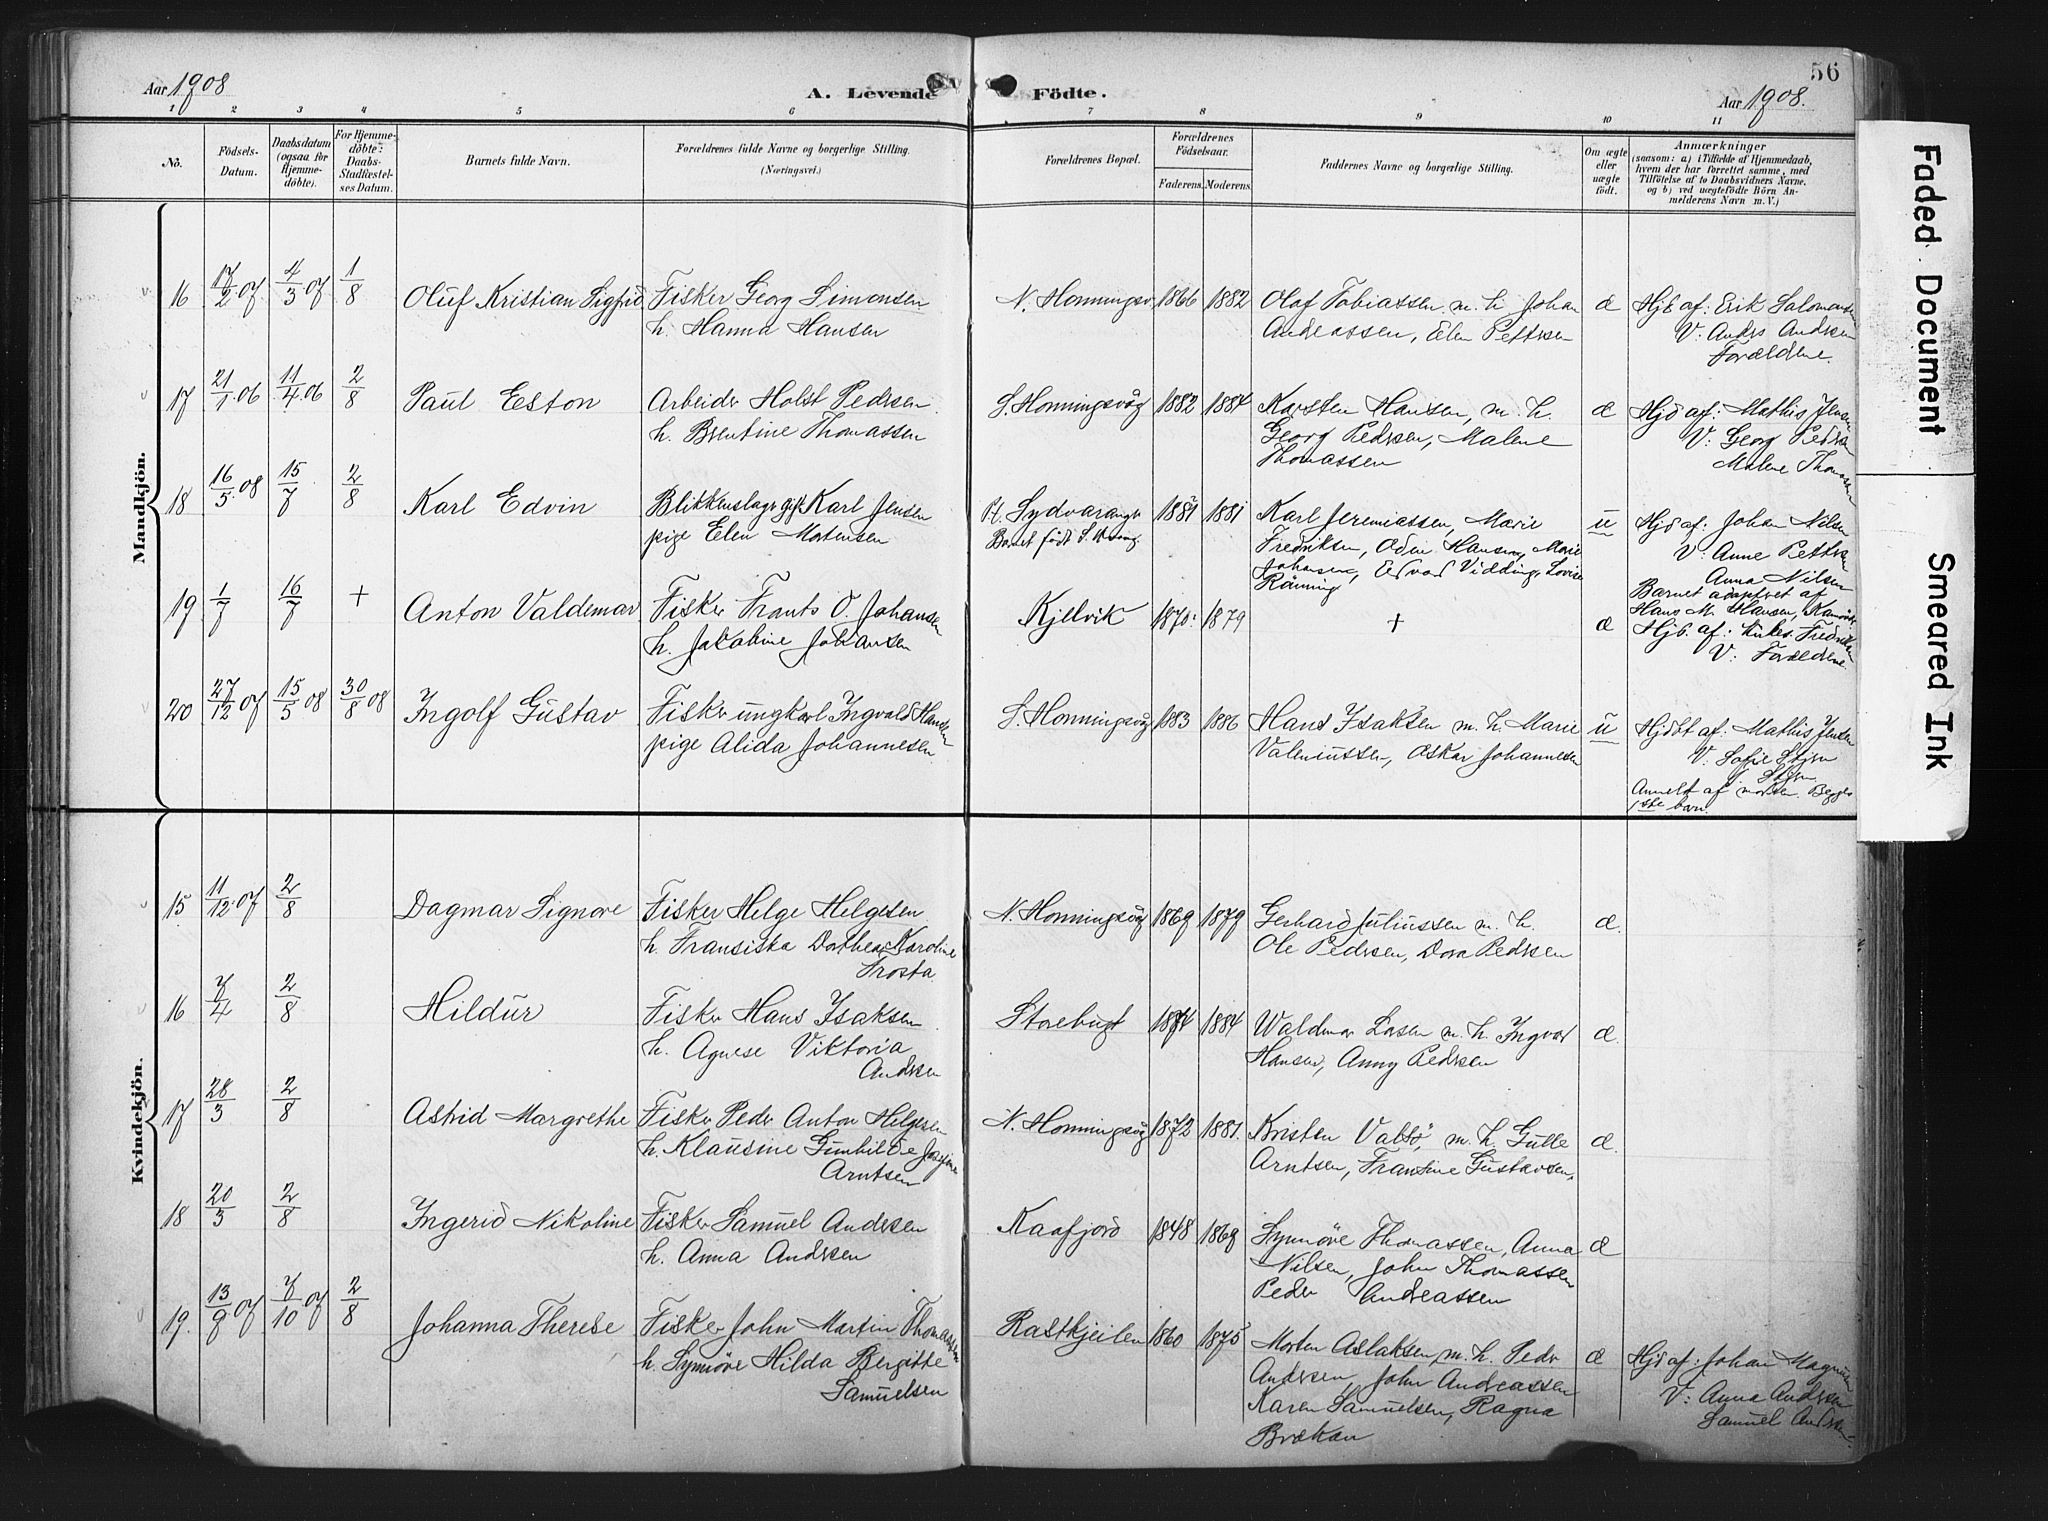 56
Aar 1908
A. Levende Födte.
Aar 1908.
1 2 3 4 5 6 7 8 9 10 11
No.
Födsels-Datum.
Daabsdatum (ogsaa for Hjemmedöbte).
For Hjemmedöbte: Daabs-Stadfæstelses Datum.
Barnets fulde Navn.
Forældrenes fulde Navne og borgerlige Stilling. (Næringsvei.)
Forældrenes Bopæl.
Forældrenes Födselsaar.
Faderens. Moderens.
Faddernes Navne og borgerlig Stilling.
Om ægte eller uægte födt.
Anmærkninger
(saasom: a) i Tilfælde af Hjemmedaab,
hvem der har forrettet samme, med
Tilföielse af to Daabsvidners Navne,
og b) ved uægtefödte Börn An-
melderens Navn m. V.)
Mandkjön.
16 17/2 07 4/3 07 1/8 Oluf Kristian Sigfrid Fisker Georg Simonsen N. Honningsv. 1866 1882 Olaf Tobiassen m. h. Johan æ Hjd af: Erik Salomonsen
h. Hanna Hansen Andreassen, Elen Pettersen V: Anders Andersen
Forældrene.
17 21/1 06 11/4 06 2/8 Paul Eston Arbeider Holst Pedersen S. Honningsvåg 1882 1884 Karsten Hansen, m. h. æ Hjd af: Mathis Jensen
h. Berntine Thomassen Georg Pedersen, Malene V: Georg Pedersen
Thomassen Malene Thomassen
18 16/5 08 15/7 2/8 Karl Edvin Blikkenslager gift Karl Jensen Sydvaranger 1881 1881 Karl Jeremiassen, Marie u Hjd af: Johan Nilsen
pige Elen Mortensen Barnet födt S. Fredriksen, Odin Hansen, Marie V: Anne Pettersen
Johansen, Edvard Vidding, Lovise Anna Nilsen
Rånning Barnet adoptret af
Hans M. Hansen,
19 1/7 16/7 + Anton Valdemar Fisker Frants O. Johansen Kjelvik 1870 1879 + æ Hjd. af: Kirkes. Fredriksen
h. Jakobine Johansen V: Forældrene.
20 27/12 07 15/5 08 30/8 08 Ingolf Gustav Fisker ungkarl Ingvald Hansen S. Honningsvåg 1883 1886 Hans Isaksen m. h. Marie u Hjdbt af: Mathis Jensen
pige Alida Johannesen Valeniussen, Oskar Johannesen V: Sofie Stjern
Stjern
Anmeldt af moren. Begges
1ste barn.
Kvindekjön.
15 11/12 07 2/8 Dagmar Signore Fisker Helge Helgesen N. Honningsvåg 1869 1879 Gerhard Juliussen m. h. æ.
h. Fransiska Dorthea Karoline Ole Pedersen, Dora Pedersen
Frosta
16 7/4 2/8 Hildur Fisker Hans Isaksen Storebugt 1874 1884 Waldemar Larsen m. h. Ingvar æ.
h. Agnese Viktoria Hansen, Anny Pedersen
Andersen
17 28/3 2/8 Astrid Margrethe Fisker Peder Anton Helgesen N. Honningsvåg 1872 1881. Kristen Valsö, m. h. Gulle æ.
h. Klausine Gunhilde Josefine Arntsen, Frantsine Gustavsen,
Arntsen
18 20/3 2/8 Ingerid Nikoline Fisker Samuel Andersen Kaafjord 1848 1868 Synnöve Thomassen, Anna æ
h. Anna Andersen Nilsen, John Thomassen
Peder Andreassen
19. 13/9 07 7/10 07 2/8 Johanna Therese Fisker John Martin Thomassen Rastkjeilen 1860 1875 Morten Aslaksen, m. h. Peder æ Hjd af: Johan Magnusen
h. Synnöve Hilda Bergitte Andersen, John Andreassen V: Anna Andersen
Samuelsen Karen Samuelsen, Ragna Samuel Andersen
Brækan
Faded Document
Smeared Ink